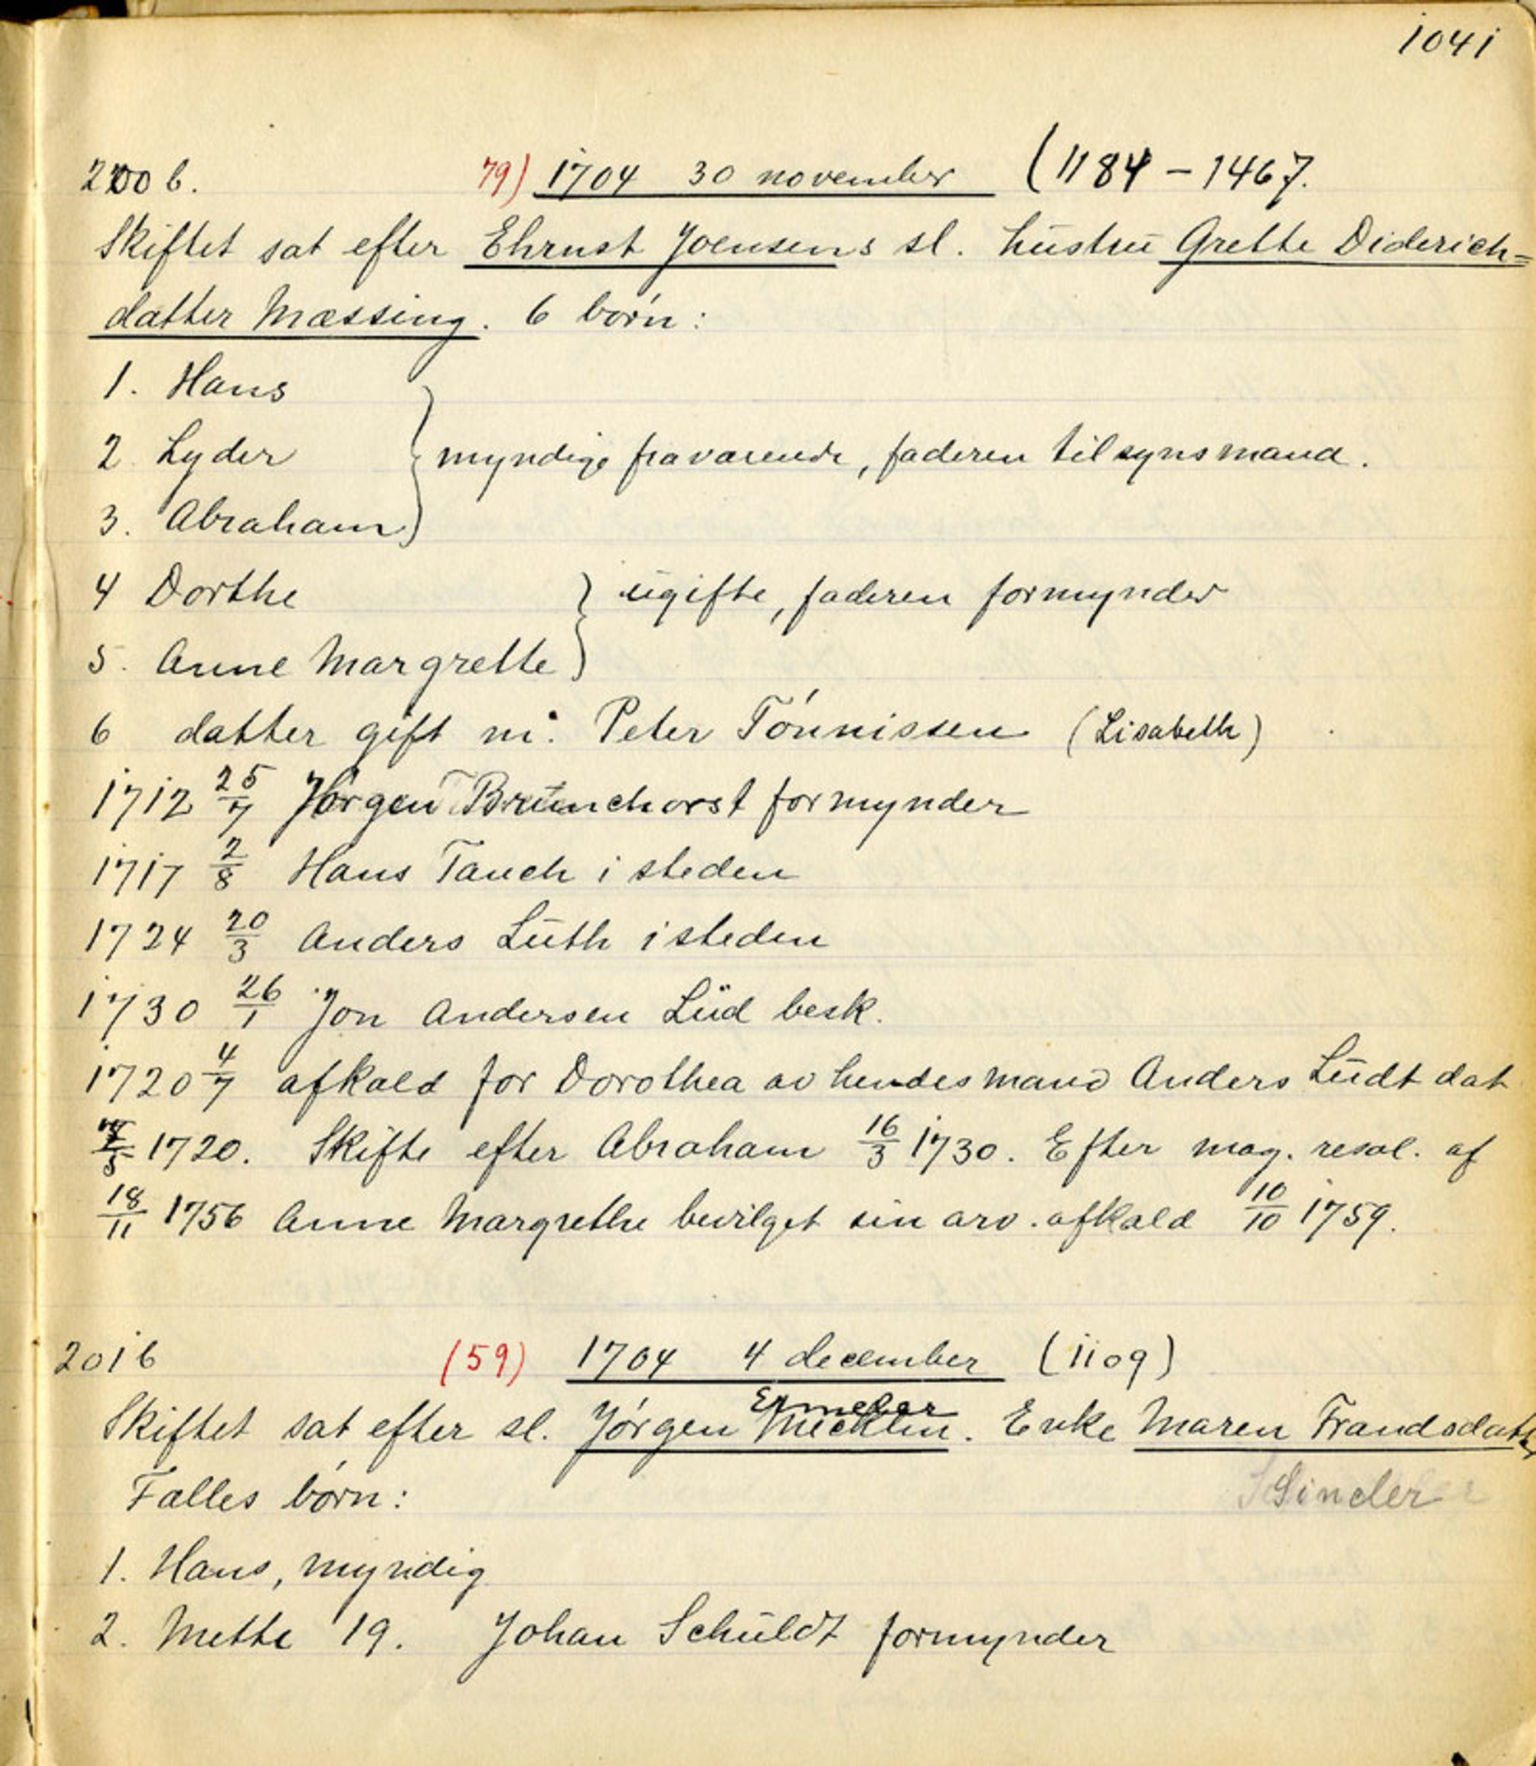 1041
200 b. 79) 1704 30 november (1184 - 1467.
Skiftet sat efter Ehrnst Joensens sl. hustru Grethe Diderich=
datter Mæssing. 6 børn:
1. Hans
2 Lyder } myndige fraværende, faderen tilsynsmand.
3. Abraham
4 Dorthe } ugifte, faderen formynder
5. Anne Margrethe
6 datter gift m. Peter Tönnissen (Lisabeth)
1712 25/7 Jørgen Brunchorst formynder
1717 2/8 Hans Tauch i steden
1724 20/3 Anders Lüth i steden
1730 26/1 Jon Andersen Lüd besk.
1720 4/7 afkald for Dorothea av hendes mand Anders Lüdt dat
1720. Skifte efter Abraham 16/3 1730. Efter mag. resol. af
18/11 1756 Anne Margrethe bevilget sin arv. afkald 10/10 1759.
201 b (59) 1704 4 december (1109)
Skiftet sat efter sl. Jørgen Mecklin. Enke Maren Frandsdatter
Fælles børn: Sincler
1. Hans, myndig
2. Mette 19. Johan Schüldt formynder